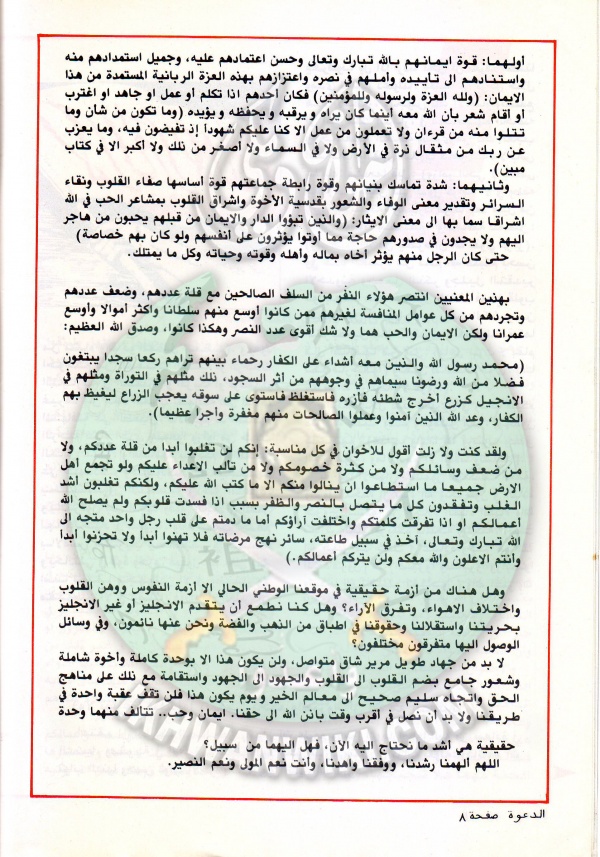 أولهما: قوة ايمانهم بالله تبارك وتعالى وحسن اعتمادهم عليه، وجميل استمدادهم منه
واستنادهم الى تأييده وأملهم في نصره واعتزازهم بهذه العزة الربانية المستمدة من هذا
الايمان: (ولله العزة ولرسوله وللمؤمنين) فكان أحدهم اذا تكلم أو عمل او جاهد او اغترب
او أقام شعر بأن الله معه أينما كان يراه و يرقبه و يحفظه و يؤيده (وما تكون من شأن وما
تتلوا منه من قرءان ولا تعملون من عمل الا كنا عليكم شهوداً إذ تفيضون فيه، وما يعزب
عن ربك من مثقال ذرة في الأرض ولا في السماء ولا أصغر من ذلك ولا أكبر الا في كتاب
مبين).
وثانيهما: شدة تماسك بنيانهم وقوة رابطة جماعتهم قوة أساسها صفاء القلوب ونقاء
السرائر وتقدير معنى الوفاء والشعور بقدسية الأخوة واشراق القلوب بمشاعر الحب في الله
اشراقا سما بها الى معنى الايثار: (والذين تبؤوا الدار والايمان من قبلهم يحبون من هاجر
اليهم ولا يجدون في صدورهم حاجة مما أوتوا يؤثرون على أنفسهم ولو كان بهم خصاصة)
حتى كان الرجل منهم يؤثر أخاه بماله وأهله وقوته وحياته وكل ما يمتلك.
بهذين المعنيين انتصر هؤلاء النفر من السلف الصالحين مع قلة عددهم، وضعف عددهم
وتجردهم من كل عوامل المنافسة لغيرهم ممن كانوا أوسع منهم سلطانا واكثر أموالا وأوسع
عمرانا ولكن الايمان والحب هما ولا شك أقوى عدد النصر وهكذا كانوا، وصدق الله العظيم:
(محمد رسول الله والذين معه أشداء على الكفار رحماء بينهم تراهم ركعا سجدا يبتغون
فضلا من الله ورضونا سيماهم في وجوههم من أثر السجود، ذلك مثلهم في التوراة ومثلهم في
الانجيل كزرع أخرج شطئه فآزره فاستغلظ فاستوى على سوقه يعجب الزراع ليغيظ بهم
الكفار، وعد الله الذين آمنوا وعملوا الصالحات منهم مغفرة وأجرا عظيما).
ولقد كنت ولا زلت أقول للاخوان في كل مناسبة: إنكم لن تغلبوا أبدا من قلة عددكم، ولا
من ضعف وسائلكم ولا من كثرة خصومكم ولا من تألب الاعداء عليكم ولو تجمع أهل
الارض جميعا ما استطاعوا ان ينالوا منكم الا ما كتب الله عليكم، ولكنكم تغلبون أشد
الغلب وتفقدون كل ما يتصل بالنصر والظفر بسبب اذا فسدت قلوبكم ولم يصلح الله
أعمالكم او اذا تفرقت كلمتكم واختلفت آراؤكم أما ما دمتم على قلب رجل واحد متجه الى
الله تبارك وتعالى، آخذ في سبيل طاعته، سائر نهج مرضاته فلا تهنوا أبدا ولا تحزنوا أبدا
وأنتم الاعلون والله معكم ولن يتركم أعمالكم.)
وهل هناك من أزمة حقيقية في موقعنا الوطني الحالي الا أزمة النفوس ووهن القلوب
واختلاف الاهواء، وتفرق الآراء؟ وهل كنا نطمع أن يتقدم الانجليز أو غير الانجليز
بحريتنا واستقلالنا وحقوقنا في اطباق من الذهب والفضة ونحن عنها نائمون، وفي وسائل
الوصول اليها متفرقون مختلفون؟
لا بد من جهاد طويل مرير شاق متواصل، ولن يكون هذا الا بوحدة كاملة وأخوة شاملة
وشعور جامع بضم القلوب الى القلوب والجهود الى الجهود واستقامة مع ذلك على مناهج
الحق واتجاه سليم صحيح الى معالم الخير و يوم يكون هذا فلن تقف عقبة واحدة في
طريقنا ولا بد أن نصل في أقرب وقت باذن الله الى حقنا. ايمان وحب.. تتألف منهما وحدة
حقيقية هي أشد ما نحتاج اليه الآن، فهل اليهما من سبيل؟
اللهم ألهمنا رشدنا، ووفقنا واهدنا، وأنت نعم المولى ونعم النصير.
الدعوة صفحة ٨
IKHWANWIKI.COM